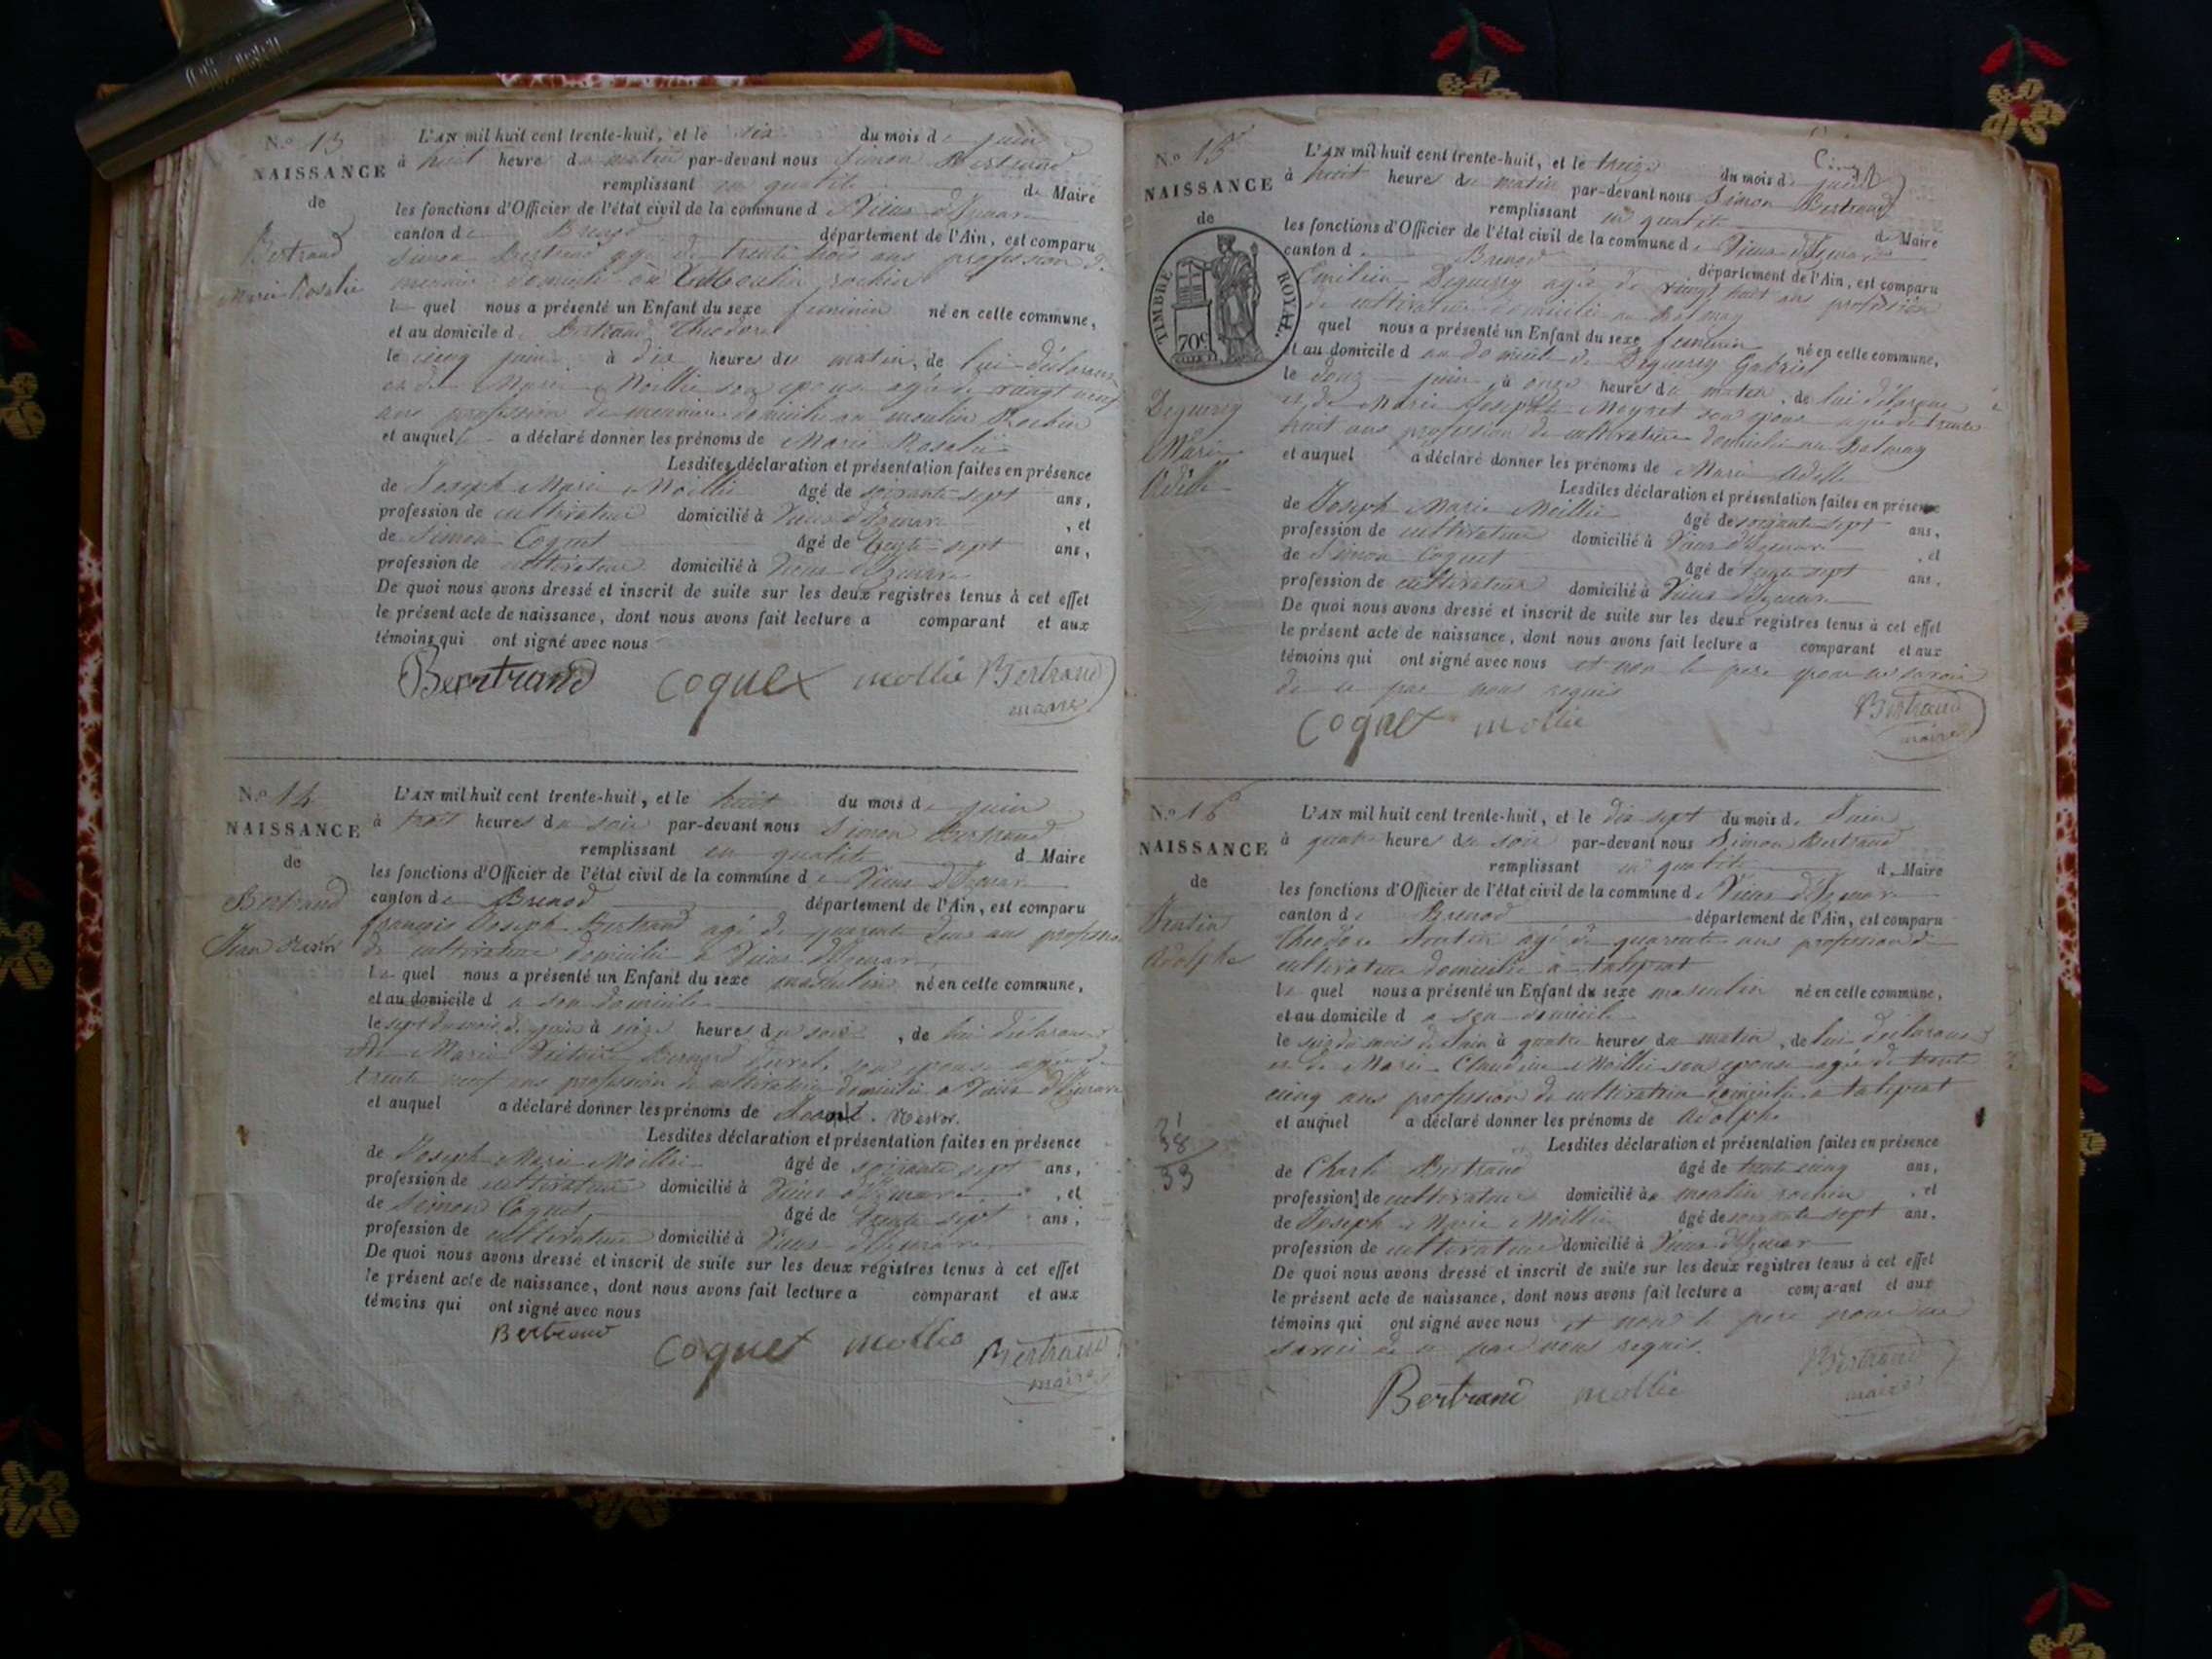 N.o 13
NAISSANCE
de
Bertrand
Marie Rosalie
L'AN mil huit cent trente-huit, et le six du mois de juin
à huit heures du matin par-devant nous Simon Bertrand
remplissant en qualité de Maire
les fonctions d'Officier de l'état civil de la commune de Vieux d'Izenave
canton de Brenod département de l'Ain, est comparu
Simon Bertrand agé de trente trois ans profession de
domicilié au
le quel nous a présenté un Enfant du sexe feminin né en cette commune,
et au domicile de Bertrand Théodore
le cinq juin à dix heures du matin, de lui déclarant
et de Marie Moillie son epouse agée de vingt neuf
ans profession de domicilié au moulin Rochin
et auquel a déclaré donner les prénoms de Marie Rosalie
Lesdites déclaration et présentation faites en présence
de Joseph Marie Moillie âgé de soixante sept ans,
profession de cultivateur domicilié à Vieux d'Izenave , et
de Simon Coquet âgé de trente sept ans,
profession de cultivateur domicilié à Vieux d'Izenave
De quoi nous avons dressé et inscrit de suite sur les deux registres tenus à cet effet
le présent acte de naissance, dont nous avons fait lecture a comparant et aux
témoins qui ont signé avec nous
Bertrand Coquet mollie Bertrand
maire
N.o 14
NAISSANCE
de
Bertrand
L'AN mil huit cent trente-huit, et le huit du mois de juin
à trois heures du soir par-devant nous Simon Bertrand
remplissant en qualité de Maire
les fonctions d'Officier de l'état civil de la commune de Vieux d'Izenave
canton de Brenod département de l'Ain, est comparu
françois Joseph Bertrand agé de quarante deux ans profession
de cultivateur domicilié à Vieux d'Izenave
le quel nous a présenté un Enfant du sexe masculin né en cette commune,
et au domicile d a son domicile
le sept du mois de juin à heures du soir, de lui déclarant
et de Marie son epouse agée de
trente neuf ans profession de cultivatrice domicilié a Vieux d'Izenave
et auquel a déclaré donner les prénoms de
Lesdites déclaration et présentation faites en présence
de Joseph Marie Moillie âgé de soixante sept ans,
profession de cultivateur domicilié à Vieux d'Izenave , et
de Simon Coquet âgé de trente sept ans,
profession de cultivateur domicilié à Vieux d'Izenave
De quoi nous avons dressé et inscrit de suite sur les deux registres tenus à cet effet
le présent acte de naissance, dont nous avons fait lecture a comparant et aux
témoins qui ont signé avec nous
Bertrand Coquet mollie Bertrand
maire
N.o 15
NAISSANCE
de
TIMBRE ROYAL
70c
Marie
Adelle
L'AN mil huit cent trente-huit, et le treize du mois de juin
à huit heures du matin par-devant nous Simon Bertrand
remplissant en qualité de Maire
les fonctions d'Officier de l'état civil de la commune de Vieux d'Izenave
canton de Brenod département de l'Ain, est comparu
agé de vingt huit ans profession
de cultivateur domicilié au Balmay
quel nous a présenté un Enfant du sexe feminin né en cette commune,
et au domicile d au domicile de Gabriel
le douze juin à onze heures du matin, de lui déclarant
et de Marie Josephte son epouse agée de trente
huit ans profession de cultivatrice domicilié au Balmay
et auquel a déclaré donner les prénoms de Marie Adelle
Lesdites déclaration et présentation faites en présence
de Joseph Marie Moillie âgé de soixante sept ans,
profession de cultivateur domicilié à Vieux d'Izenave , et
de Simon Coquet âgé de trente sept ans,
profession de cultivateur domicilié à Vieux d'Izenave
De quoi nous avons dressé et inscrit de suite sur les deux registres tenus à cet effet
le présent acte de naissance, dont nous avons fait lecture a comparant et aux
témoins qui ont signé avec nous et non le pere pour ne savoir
de ce par nous requis
Coquet mollie Bertrand
maire
N.o 16
NAISSANCE
de
Adolphe
21
38
33
L'AN mil huit cent trente-huit, et le dix sept du mois de Juin
à quatre heures du soir par-devant nous Simon Bertrand
remplissant en qualité de Maire
les fonctions d'Officier de l'état civil de la commune de Vieux d'Izenave
canton de Brenod département de l'Ain, est comparu
Théodore agé de quarante ans profession de
cultivateur domicilié à talipiat
le quel nous a présenté un Enfant du sexe masculin né en cette commune,
et au domicile d a son domicile
le seize du mois de Juin à quatre heures du matin, de lui déclarant
et de Marie Claudine Moillie son epouse agée de trente
cinq ans profession de cultivatrice domicilié a talipiat
et auquel a déclaré donner les prénoms de Adolphe
Lesdites déclaration et présentation faites en présence
de Charle Bertrand âgé de trente cinq ans,
profession de cultivateur domicilié à moulin rochin , et
de Joseph Marie Moillie âgé de soixante sept ans,
profession de cultivateur domicilié à Vieux d'Izenave
De quoi nous avons dressé et inscrit de suite sur les deux registres tenus à cet effet
le présent acte de naissance, dont nous avons fait lecture a comparant et aux
témoins qui ont signé avec nous et non le pere pour ne
savoir de ce par nous requis.
Bertrand mollie Bertrand
maire